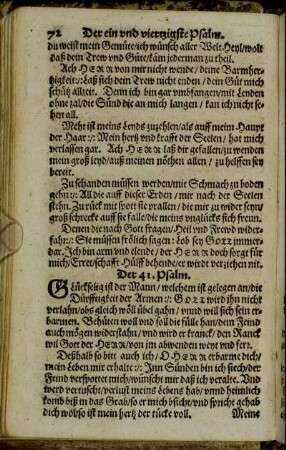 72 Der ein vnd viertzigste Psalm.
du weist mein Gemüte/ich wünsch aller Welt Heyl/wolt
daß dein Trew vnd Güte/käm jederman zu theil.
Ach HERR von mir nicht wende/deine Barmher-
tzigkeit :/: Laß sich dein Trew nicht enden/dein Güt mich
schütz allzeit. Denn ich bin gar vmbfangen/mit Lenden
ohne zal/die Sünd die an mich langen/kan ich nicht se-
hen all.
Mehr ist meins Lends zuzehlen/als auff meim Haupt
der Haar :/: Mein hertz vnd krafft der Seelen/hat mich
verlassen gar. Ach HERR laß dir gefallen/zu wenden
mein groß leyd/auß meinen nöthen allen/zu helffen sey
bereit.
Zu schanden müssen werden/mit Schmach zu boden
gehn :/: All die auff dieser Erden/mir nach der Seelen
stehn. Zu rück mit spott sie prallen/die mir zu wider seyn/
groß schrecke auff sie falle/die meins vnglücks sich freun.
Denen die nach Gott fragen/Heil vnd Frewd wider-
fahr :/: Sie müssen frölich sagen: Lob sey GOTT jmmer
dar. Ich bin arm vnd elende/der HERR doch sorgt für
mich/Erret/schafft Hülff behende/er wirdt verziehen nit.
Der 41. Psalm.
GLückselig ist der Mann/welchem ist gelegen an/die
Dürfftigkeit der Armen :/: GOTT wird ihn nicht
verlahn/obs gleich wöll übel gahn/vnnd will sich sein er-
barmen. Behüten woll vnd soll die fülle han/dem Feind
auch mögen widerstahn/vnd wird er kranck/den Ranck
wil Gott der HERR/von jm abwenden weyt vnd fern.
Deßhalb so bitt auch ich/O HERR erbarme dich/
mein Leben mir erhalte :/: Inn Sünden bin ich siech/der
Feind verspottet mich/wünscht mir daß ich veralte. Vnd
werd vertuscht/verlust meins Lebens hab/vnnd heimlich
komb biß in das Grab/so er mich bsicht/vnd spricht gehab
dich wol/so ist mein hertz der tücke voll.
Meine